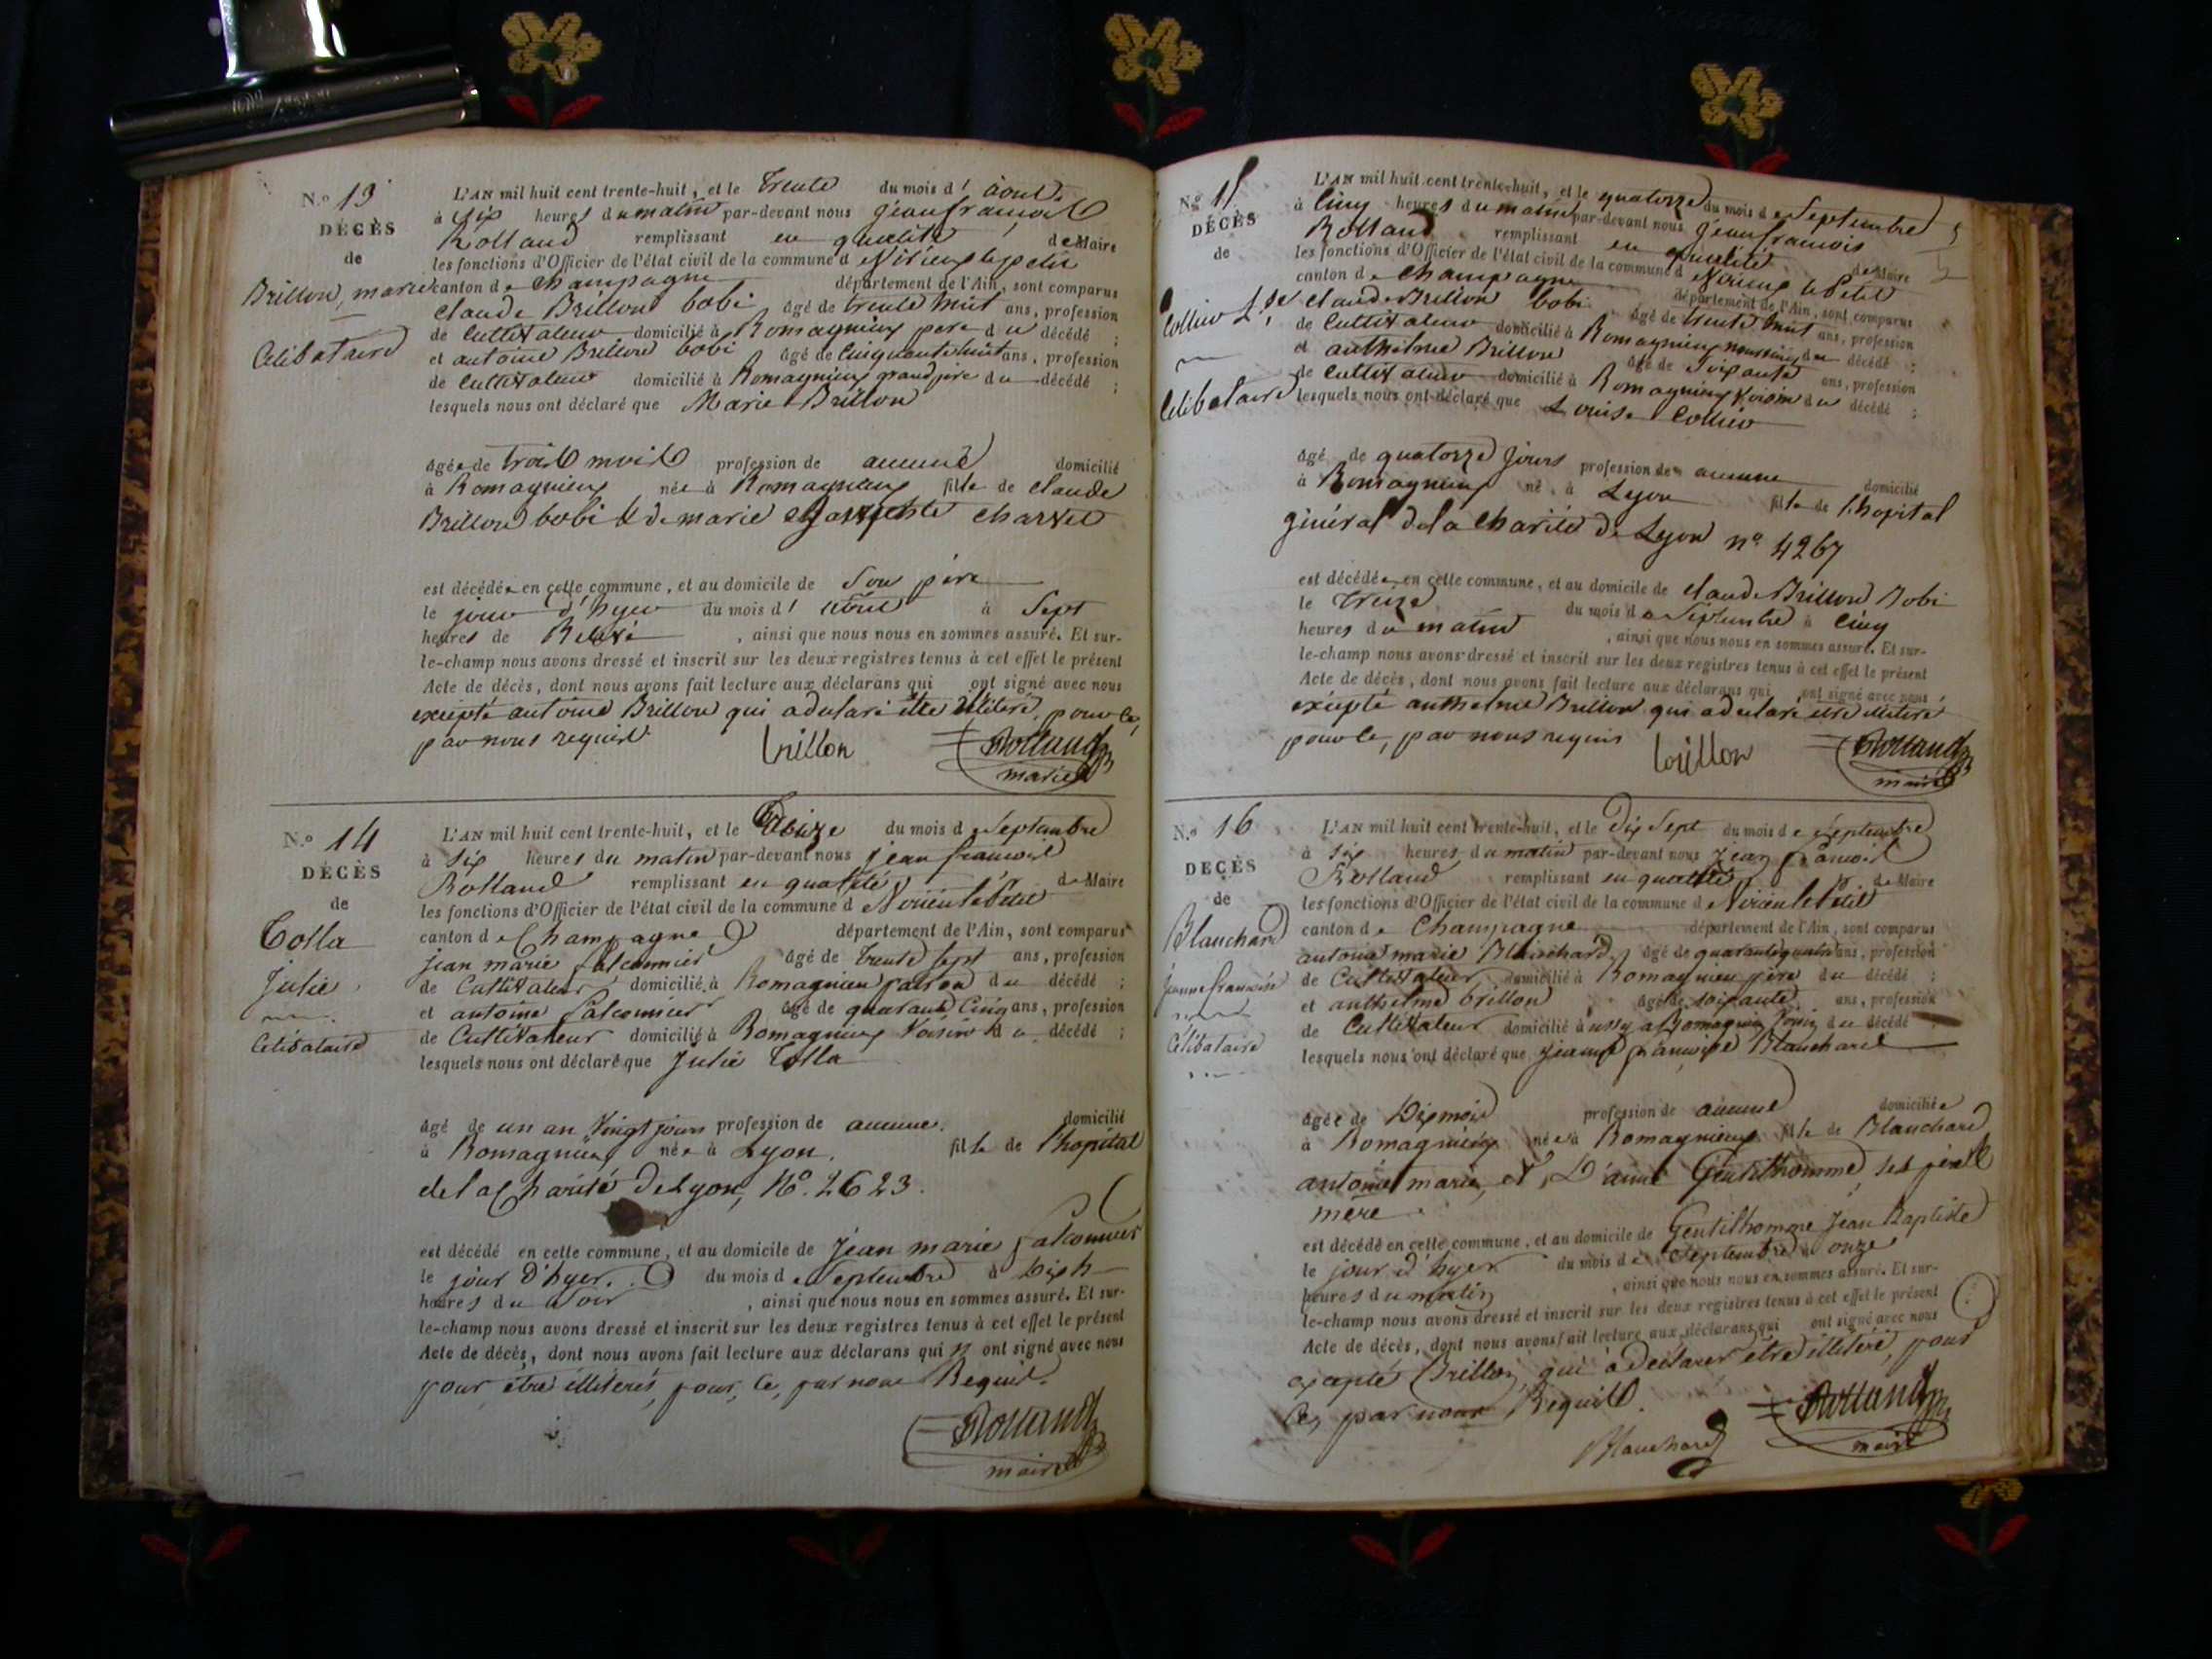 N.º 13
DÉCÈS
de
Brillon, marie
Célibataire
L'AN mil huit cent trente-huit, et le trente du mois d' aout
à six heures du matin par-devant nous jean françois
Rolland remplissant en qualité de Maire
les fonctions d'Officier de l'état civil de la commune d Virieux le petit
canton de Champagne département de l'Ain, sont comparus
claude Brillon bobi âgé de trente huit ans, profession
de Cultivateur domicilié à Romagnieux pere du décédé ;
et antoine Brillon bobi âgé de Cinquante huit ans, profession
de Cultivateur domicilié à Romagnieux grand père du décédé ;
lesquels nous ont déclaré que Marie Brillon
âgée de trois mois profession de aucune domicilié
à Romagnieux née à Romagnieux fille de claude
Brillon bobi & de marie charvet
est décédée en cette commune, et au domicile de Son père
le jour d'hyer du mois d' aout à Sept
heures de , ainsi que nous nous en sommes assuré. Et sur-
le-champ nous avons dressé et inscrit sur les deux registres tenus à cet effet le présent
Acte de décès, dont nous avons fait lecture aux déclarans qui ont signé avec nous
excepté antoine Brillon qui a declaré être illiteré pour ce,
par nous requis
brillon Rolland
maire
N.º 14
DÉCÈS
de
Tolla
Julie
Célibataire
L'AN mil huit cent trente-huit, et le treize du mois de Septembre
à six heures du matin par-devant nous jean françois
Rolland remplissant en qualité de Maire
les fonctions d'Officier de l'état civil de la commune d Virieu le Petit
canton de Champagne département de l'Ain, sont comparus
jean marie falconnier âgé de trente sept ans, profession
de Cultivateur domicilié à Romagnieu patron du décédé ;
et antoine falconnier âgé de quarante Cinq ans, profession
de Cultivateur domicilié à Romagnieux Voisin du décédé ;
lesquels nous ont déclaré que Julie Tolla
âgé de un an Vingt jours profession de aucune. domicilié
à Romagnieux née à Lyon. fille de l'hopital
de la Charité de Lyon, Nº. 2623.
est décédé en cette commune, et au domicile de Jean marie falconnier
le jour d'hyer. du mois de Septembre à
heures du Soir , ainsi que nous nous en sommes assuré. Et sur-
le-champ nous avons dressé et inscrit sur les deux registres tenus à cet effet le présent
Acte de décès, dont nous avons fait lecture aux déclarans qui n ont signé avec nous
pour être illiterés, pour, ce, par nous Requis.
Rolland
maire
N.º 15
DÉCÈS
de
Collier L.se
Célibataire
L'AN mil huit cent trente-huit, et le quatorze du mois de Septembre
à Cinq heures du matin par-devant nous jean francois
Rolland remplissant en qualité de Maire
les fonctions d'Officier de l'état civil de la commune d Virieux le Petit
canton de Champagne département de l'Ain, sont comparus
claude Brillon bobi âgé de trente huit ans, profession
de Cultivateur domicilié à Romagnieux du décédé ;
et anthelme Brillon âgé de Soixante ans, profession
de Cultivateur domicilié à Romagnieux Voisin du décédé ;
lesquels nous ont déclaré que Louise Collier
âgé de quatorze jours profession de aucune domicilié
à Romagnieux né à Lyon fille de l'hopital
général de la Charité de Lyon nº 4267
est décédée en cette commune, et au domicile de claude Brillon Bobi
le treize du mois de Septembre à Cinq
heures du matin , ainsi que nous nous en sommes assuré. Et sur-
le-champ nous avons dressé et inscrit sur les deux registres tenus à cet effet le présent
Acte de décès, dont nous avons fait lecture aux déclarans qui ont signé avec nous
excepté anthelme Brillon qui a declaré être illiteré
pour ce, par nous requis
brillon Rolland
maire
N.º 16
DÉCÈS
de
Blanchard
jeanne françoise
Célibataire
L'AN mil huit cent trente-huit, et le Dix Sept du mois de Septembre
à six heures du matin par-devant nous jean françois
Rolland remplissant en qualité de Maire
les fonctions d'Officier de l'état civil de la commune d Virieu le Petit
canton de Champagne département de l'Ain, sont comparus
antoine marie Blanchard âgé de ans, profession
de Cultivateur domicilié à Romagnieu père du décédé ;
et anthelme brillon âgé de soixante ans, profession
de Cultivateur domicilié aussy a Romagnieu Voisin du décédé
lesquels nous ont déclaré que jeanne françoise Blanchard
âgée de Dix mois profession de aucune domiciliée
à Romagnieux née à Romagnieux fille de Blanchard
antoine marie, et, D'anne Gentilhomme, ses père &
mère
est décédé en cette commune, et au domicile de Gentilhomme Jean Baptiste
le jour d'hyer du mois de Septembre à onze
heures du matin , ainsi que nous nous en sommes assuré. Et sur-
le-champ nous avons dressé et inscrit sur les deux registres tenus à cet effet le présent
Acte de décès, dont nous avons fait lecture aux déclarans qui ont signé avec nous
excepté Brillon, qui a declarer être illiteré, pour
Ce, par nous Requis.
Blanchard Rolland
maire